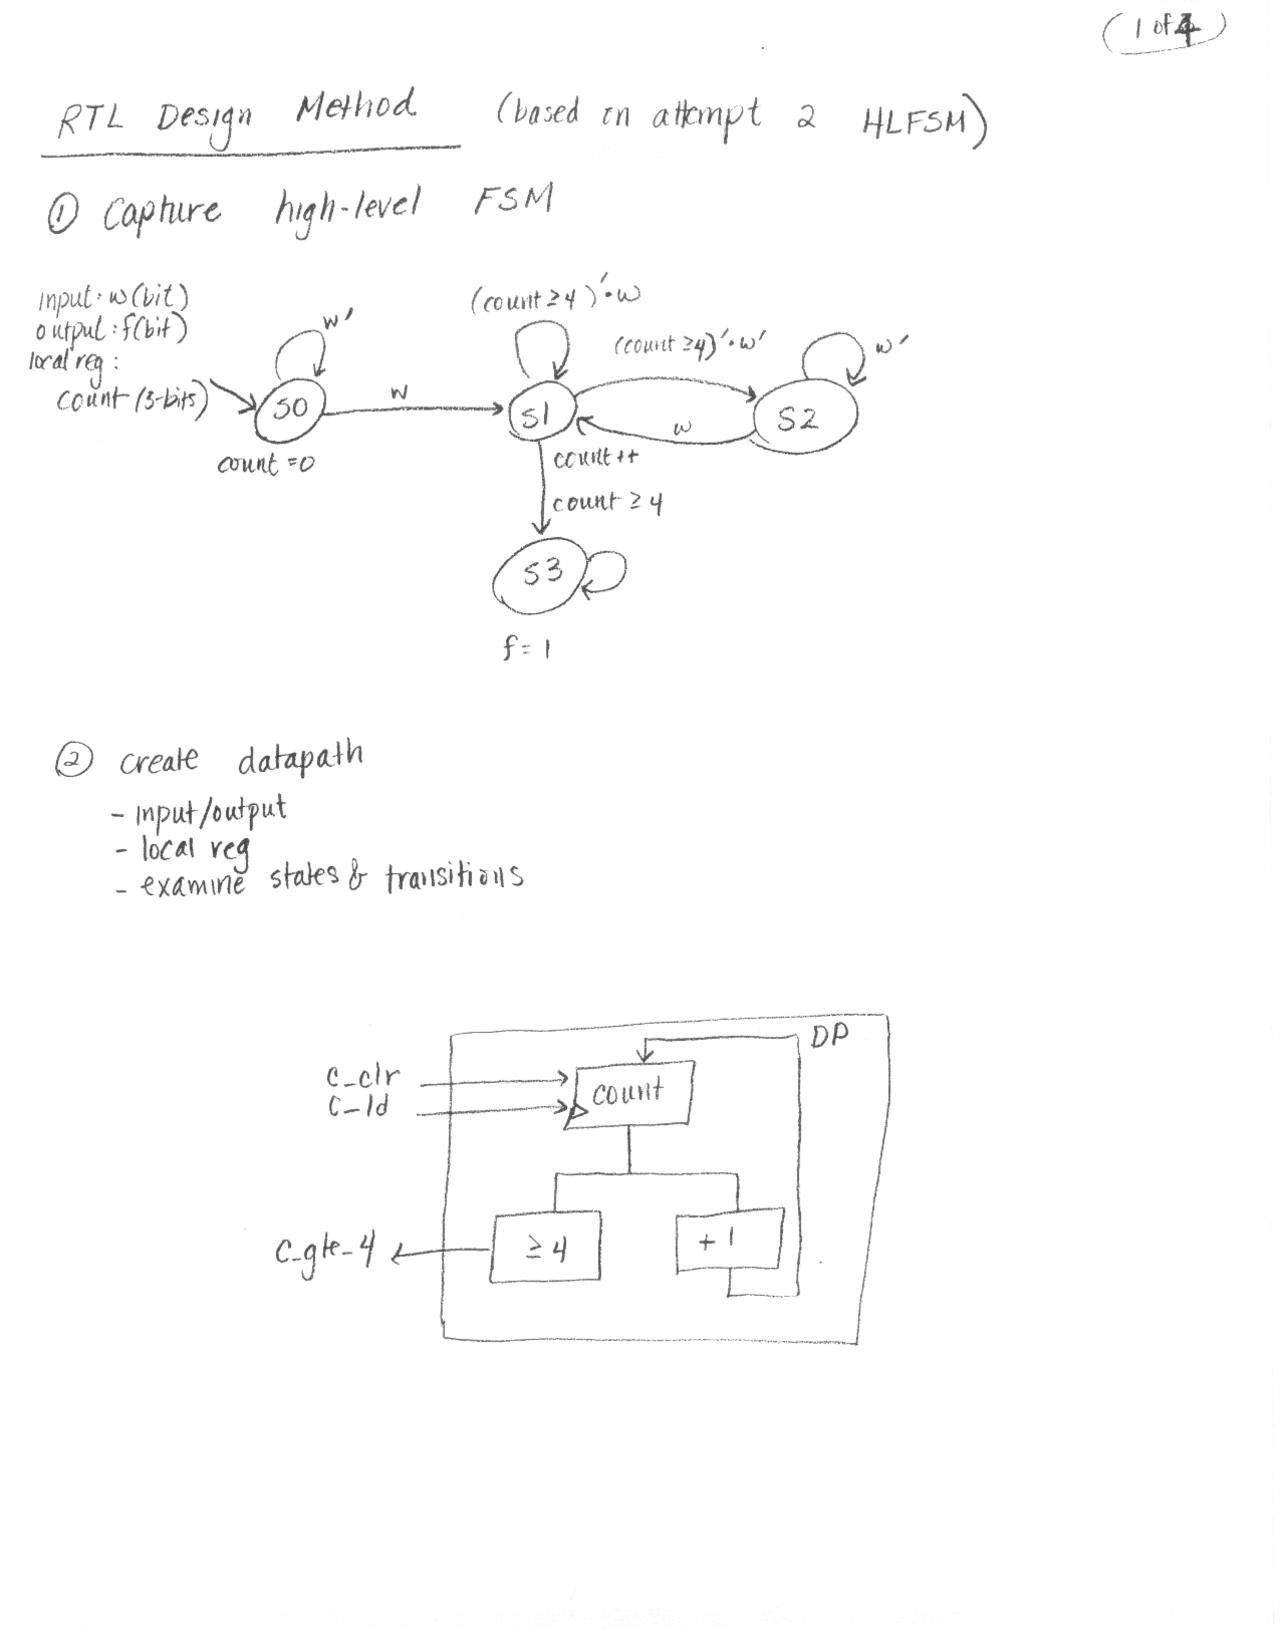 1 of 4
RTL Design Method (based on attempt 2 HLFSM)
① Capture high-level FSM
input: w(bit)
output: f(bit)
local reg:
count (3-bits)
w'
S0
count=0
w
(count≥4)'·w
S1
(count≥4)'·w'
w
S2
w'
count++
count≥4
S3
f=1
② create datapath
- input/output
- local reg
- examine states & transitions
DP
C_clr
C_ld
count
C_gte_4
≥4
+1